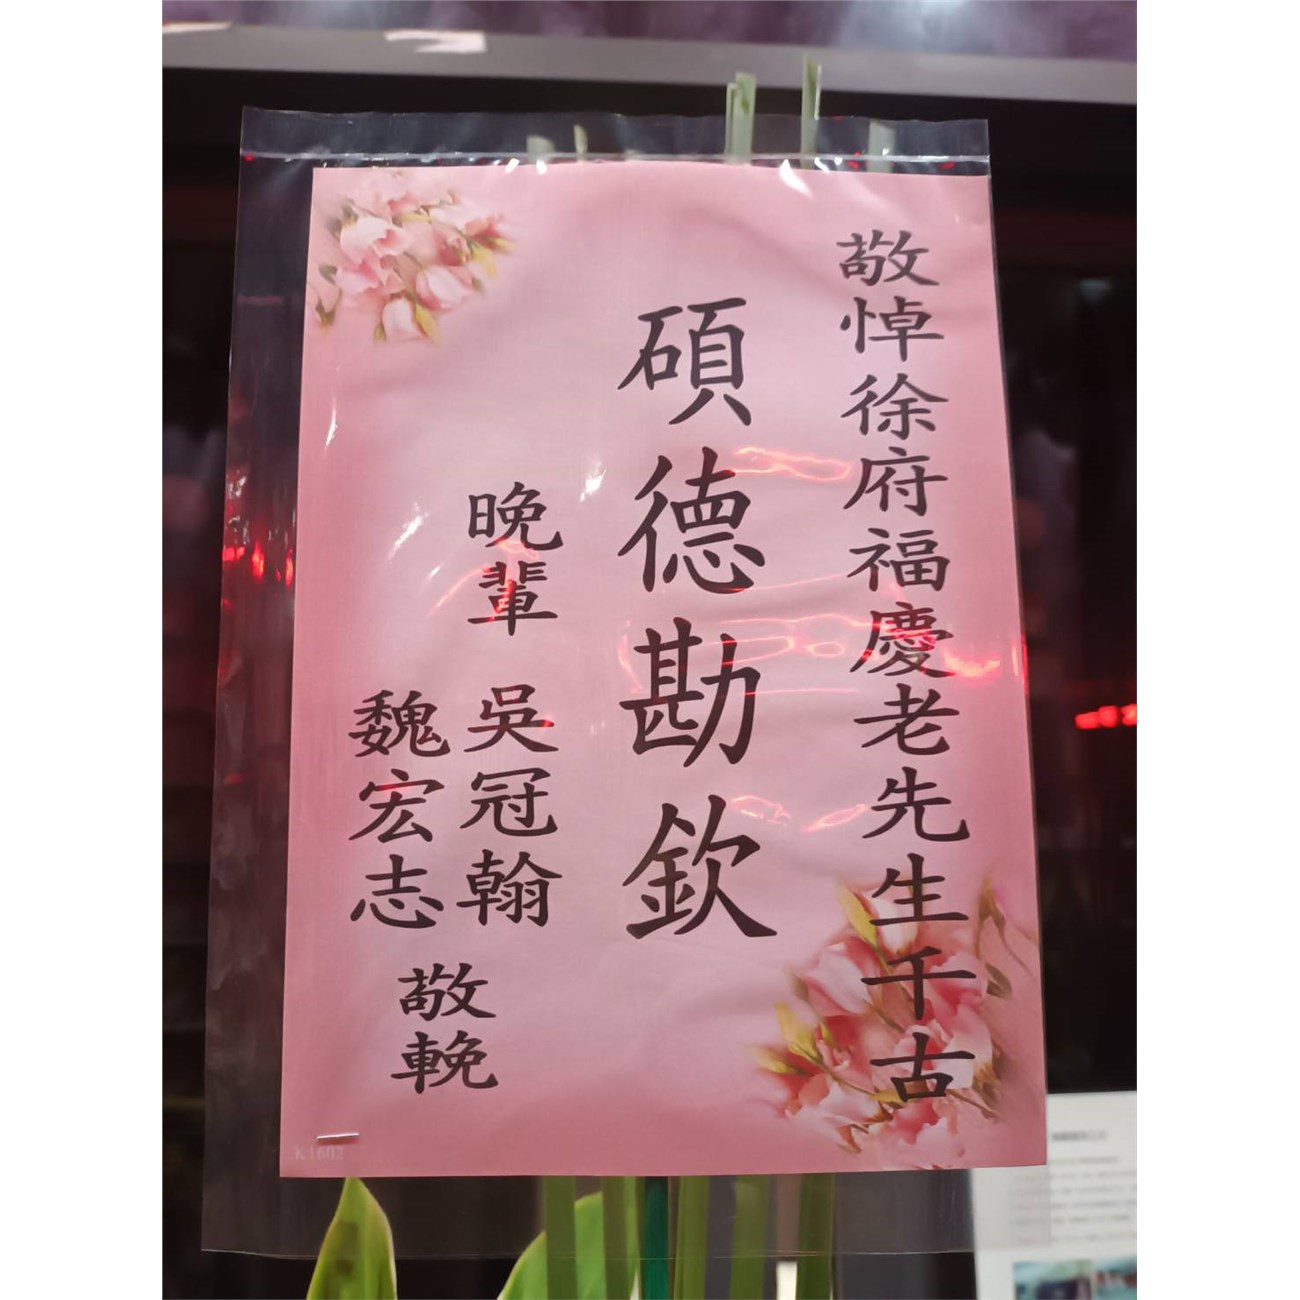 敬悼徐府福慶老先生千古
碩德勘欽
晚輩 吳冠翰
魏宏志
敬輓
K1602